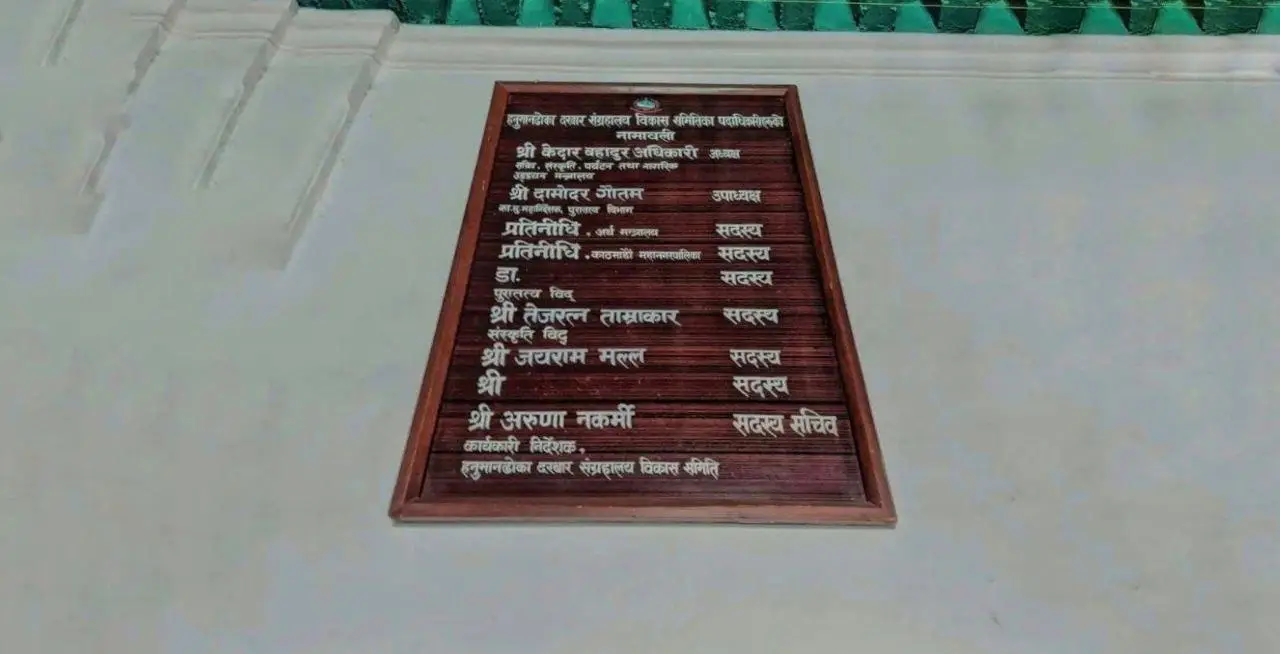 हनुमानढोका दरबार संग्रहालय विकास समितिका पदाधिकारीहरुको
नामावली
श्री केदार बहादुर अधिकारी अध्यक्ष
सचिव, संस्कृति, पर्यटन तथा नागरिक
उड्डयन मन्त्रालय
श्री दामोदर गौतम उपाध्यक्ष
का.मु.महानिर्देशक, पुरातत्व विभाग
प्रतिनीधि , अर्थ मन्त्रालय सदस्य
प्रतिनीधि , काठमाडौं महानगरपालिका सदस्य
डा. सदस्य
पुरातत्व विद्
श्री तेजरत्न ताम्राकार सदस्य
संस्कृति विद्
श्री जयराम मल्ल सदस्य
श्री सदस्य
श्री अरुणा नकर्मी सदस्य सचिव
कार्यकारी निर्देशक,
हनुमानढोका दरबार संग्रहालय विकास समिति